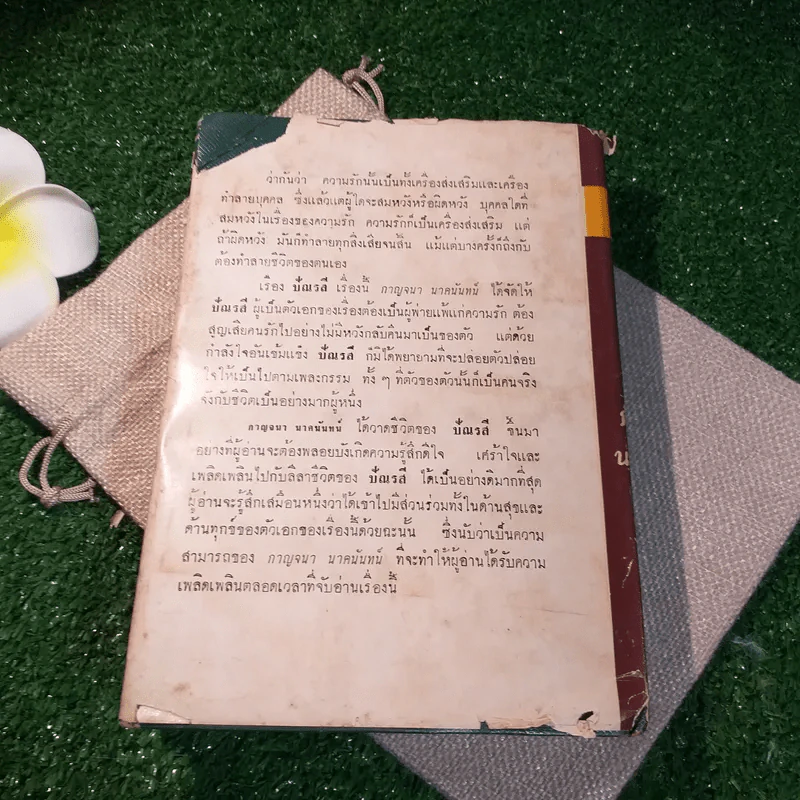 ว่ากันว่า ความรักนั้นเป็นทั้งเครื่องส่งเสริมและเครื่อง
ทำลายบุคคล ซึ่งแล้วแต่ผู้ใดจะสมหวังหรือผิดหวัง บุคคลใดที่
สมหวังในเรื่องของความรัก ความรักก็เป็นเครื่องส่งเสริม แต่
ถ้าผิดหวัง มันก็ทำลายทุกสิ่งเสียจนสิ้น แม้แต่บางครั้งก็ถึงกับ
ต้องทำลายชีวิตของตนเอง
เรื่อง ปัณรสี เรื่องนี้ กาญจนา นาคนันทน์ ได้จัดให้
ปัณรสี ผู้เป็นตัวเอกของเรื่องต้องเป็นผู้พ่ายแพ้แก่ความรัก ต้อง
สูญเสียคนรักไปอย่างไม่มีหวังกลับคืนมาเป็นของตัว แต่ด้วย
กำลังใจอันเข้มแข็ง ปัณรสี ก็มิได้พยายามที่จะปล่อยตัวปล่อย
ใจให้เป็นไปตามเพลงกรรม ทั้ง ๆ ที่ตัวของตัวนั้นก็เป็นคนจริง
จังกับชีวิตเป็นอย่างมากผู้หนึ่ง
กาญจนา นาคนันทน์ ได้วาดชีวิตของ ปัณรสี ขึ้นมา
อย่างที่ผู้อ่านจะต้องพลอยบังเกิดความรู้สึกดีใจ เศร้าใจและ
เพลิดเพลินไปกับลีลาชีวิตของ ปัณรสี ได้เป็นอย่างดีมากที่สุด
ผู้อ่านจะรู้สึกเสมือนหนึ่งว่าได้เข้าไปมีส่วนร่วมทั้งในด้านสุขและ
ด้านทุกข์ของตัวเอกของเรื่องนี้ด้วยฉะนั้น ซึ่งนับว่าเป็นความ
สามารถของ กาญจนา นาคนันทน์ ที่จะทำให้ผู้อ่านได้รับความ
เพลิดเพลินตลอดเวลาที่จับอ่านเรื่องนี้